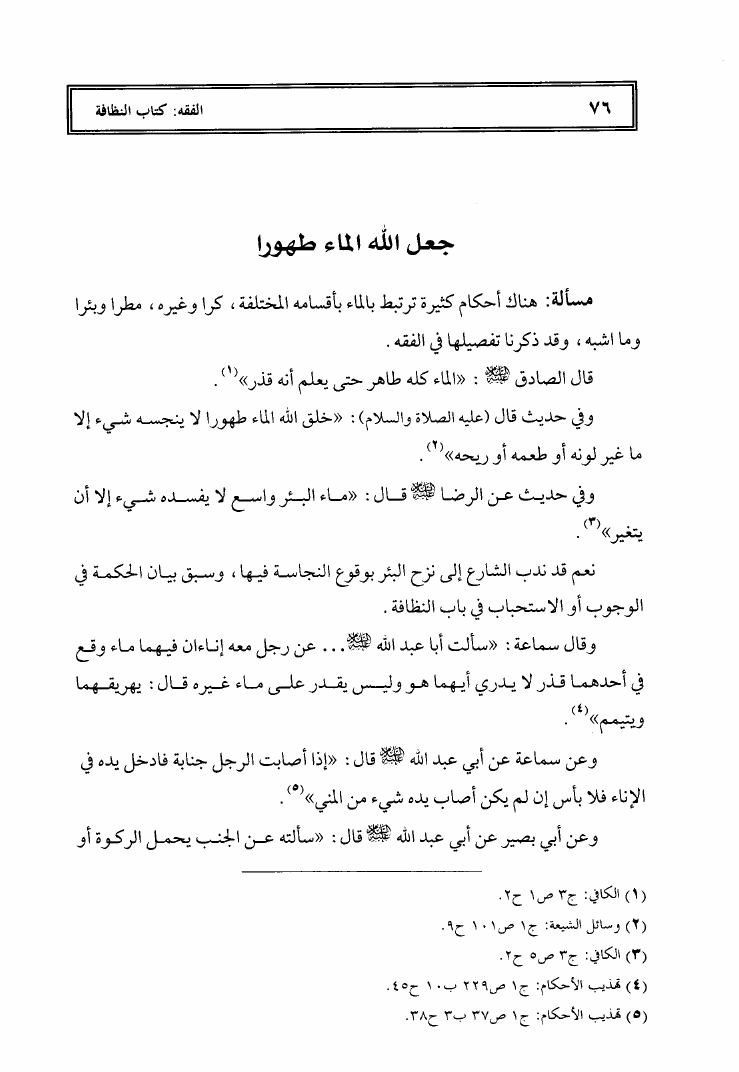 ٧٦
الفقه: كتاب النظافة
جعل الله الماء طهورا
مسألة: هناك أحكام كثيرة ترتبط بالماء بأقسامه المختلفة، كرا وغيره، مطرا وبئرا
وما اشبه، وقد ذكرنا تفصيلها في الفقه.
قال الصادق عليه السلام: «الماء كله طاهر حتى يعلم أنه قذر»(١).
وفي حديث قال (عليه الصلاة والسلام): «خلق الله الماء طهورا لا ينجسه شيء إلا
ما غير لونه أو طعمه أو ريحه»(٢).
وفي حديث عن الرضا عليه السلام قال: «ماء البئر واسع لا يفسده شيء إلا أن
يتغير»(٣).
نعم قد ندب الشارع إلى نزح البئر بوقوع النجاسة فيها، وسبق بيان الحكمة في
الوجوب أو الاستحباب في باب النظافة.
وقال سماعة: «سألت أبا عبد الله عليه السلام... عن رجل معه إناءان فيهما ماء وقع
في أحدهما قذر لا يدري أيهما هو وليس يقدر على ماء غيره قال: يهريقهما
ويتيمم»(٤).
وعن سماعة عن أبي عبد الله عليه السلام قال: «إذا أصابت الرجل جنابة فادخل يده في
الإناء فلا بأس إن لم يكن أصاب يده شيء من المني»(٥).
وعن أبي بصير عن أبي عبد الله عليه السلام قال: «سألته عن الجنب يحمل الركوة أو
(١) الكافي: ج٣ ص١ ح٢.
(٢) وسائل الشيعة: ج١ ص١٠١ ح٩.
(٣) الكافي: ج٣ ص٥ ح٢.
(٤) تهذيب الأحكام: ج١ ص٢٢٩ ب١٠ ح٤٥.
(٥) تهذيب الأحكام: ج١ ص٣٧ ب٣ ح٣٨.